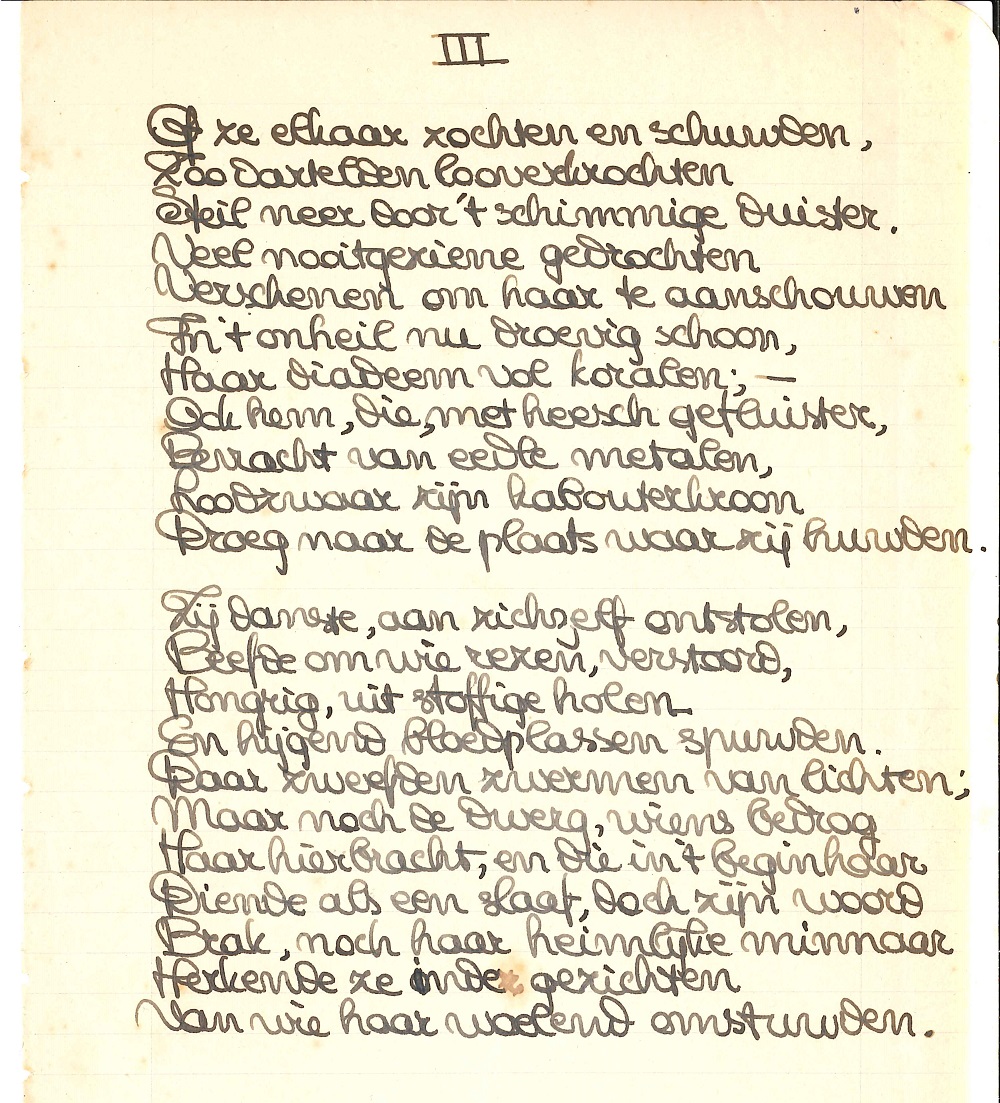 III
Of ze elkaar zochten en schuwden,
Zoo dartelden looverkrochten
Steil neer door 't schimmige duister.
Veel nooitgeziene gedrochten
Verschenen om haar te aanschouwen
In 't onheil nu droevig schoon,
Haar diadeem vol koralen; —
Ook hem, die, met heesch gefluister,
Bevracht van eedle metalen,
Loodzwaar zijn kabouterkroon
Droeg naar de plaats waar zij huwden.
Zij danste, aan zichzelf ontstolen,
Beefde om wie rezen, verstoord,
Hongrig, uit stoffige holen
En hijgend bloedplassen spuwden.
Daar zweefden zwermen van lichten;
Maar noch de dwerg, wiens bedrog
Haar hier bracht, en die in 't begin haar
Diende als een slaaf, doch zijn woord
Brak, noch haar heimlijke minnaar
Herkende ze in de gezichten
Van wie haar woelend omstuwden.